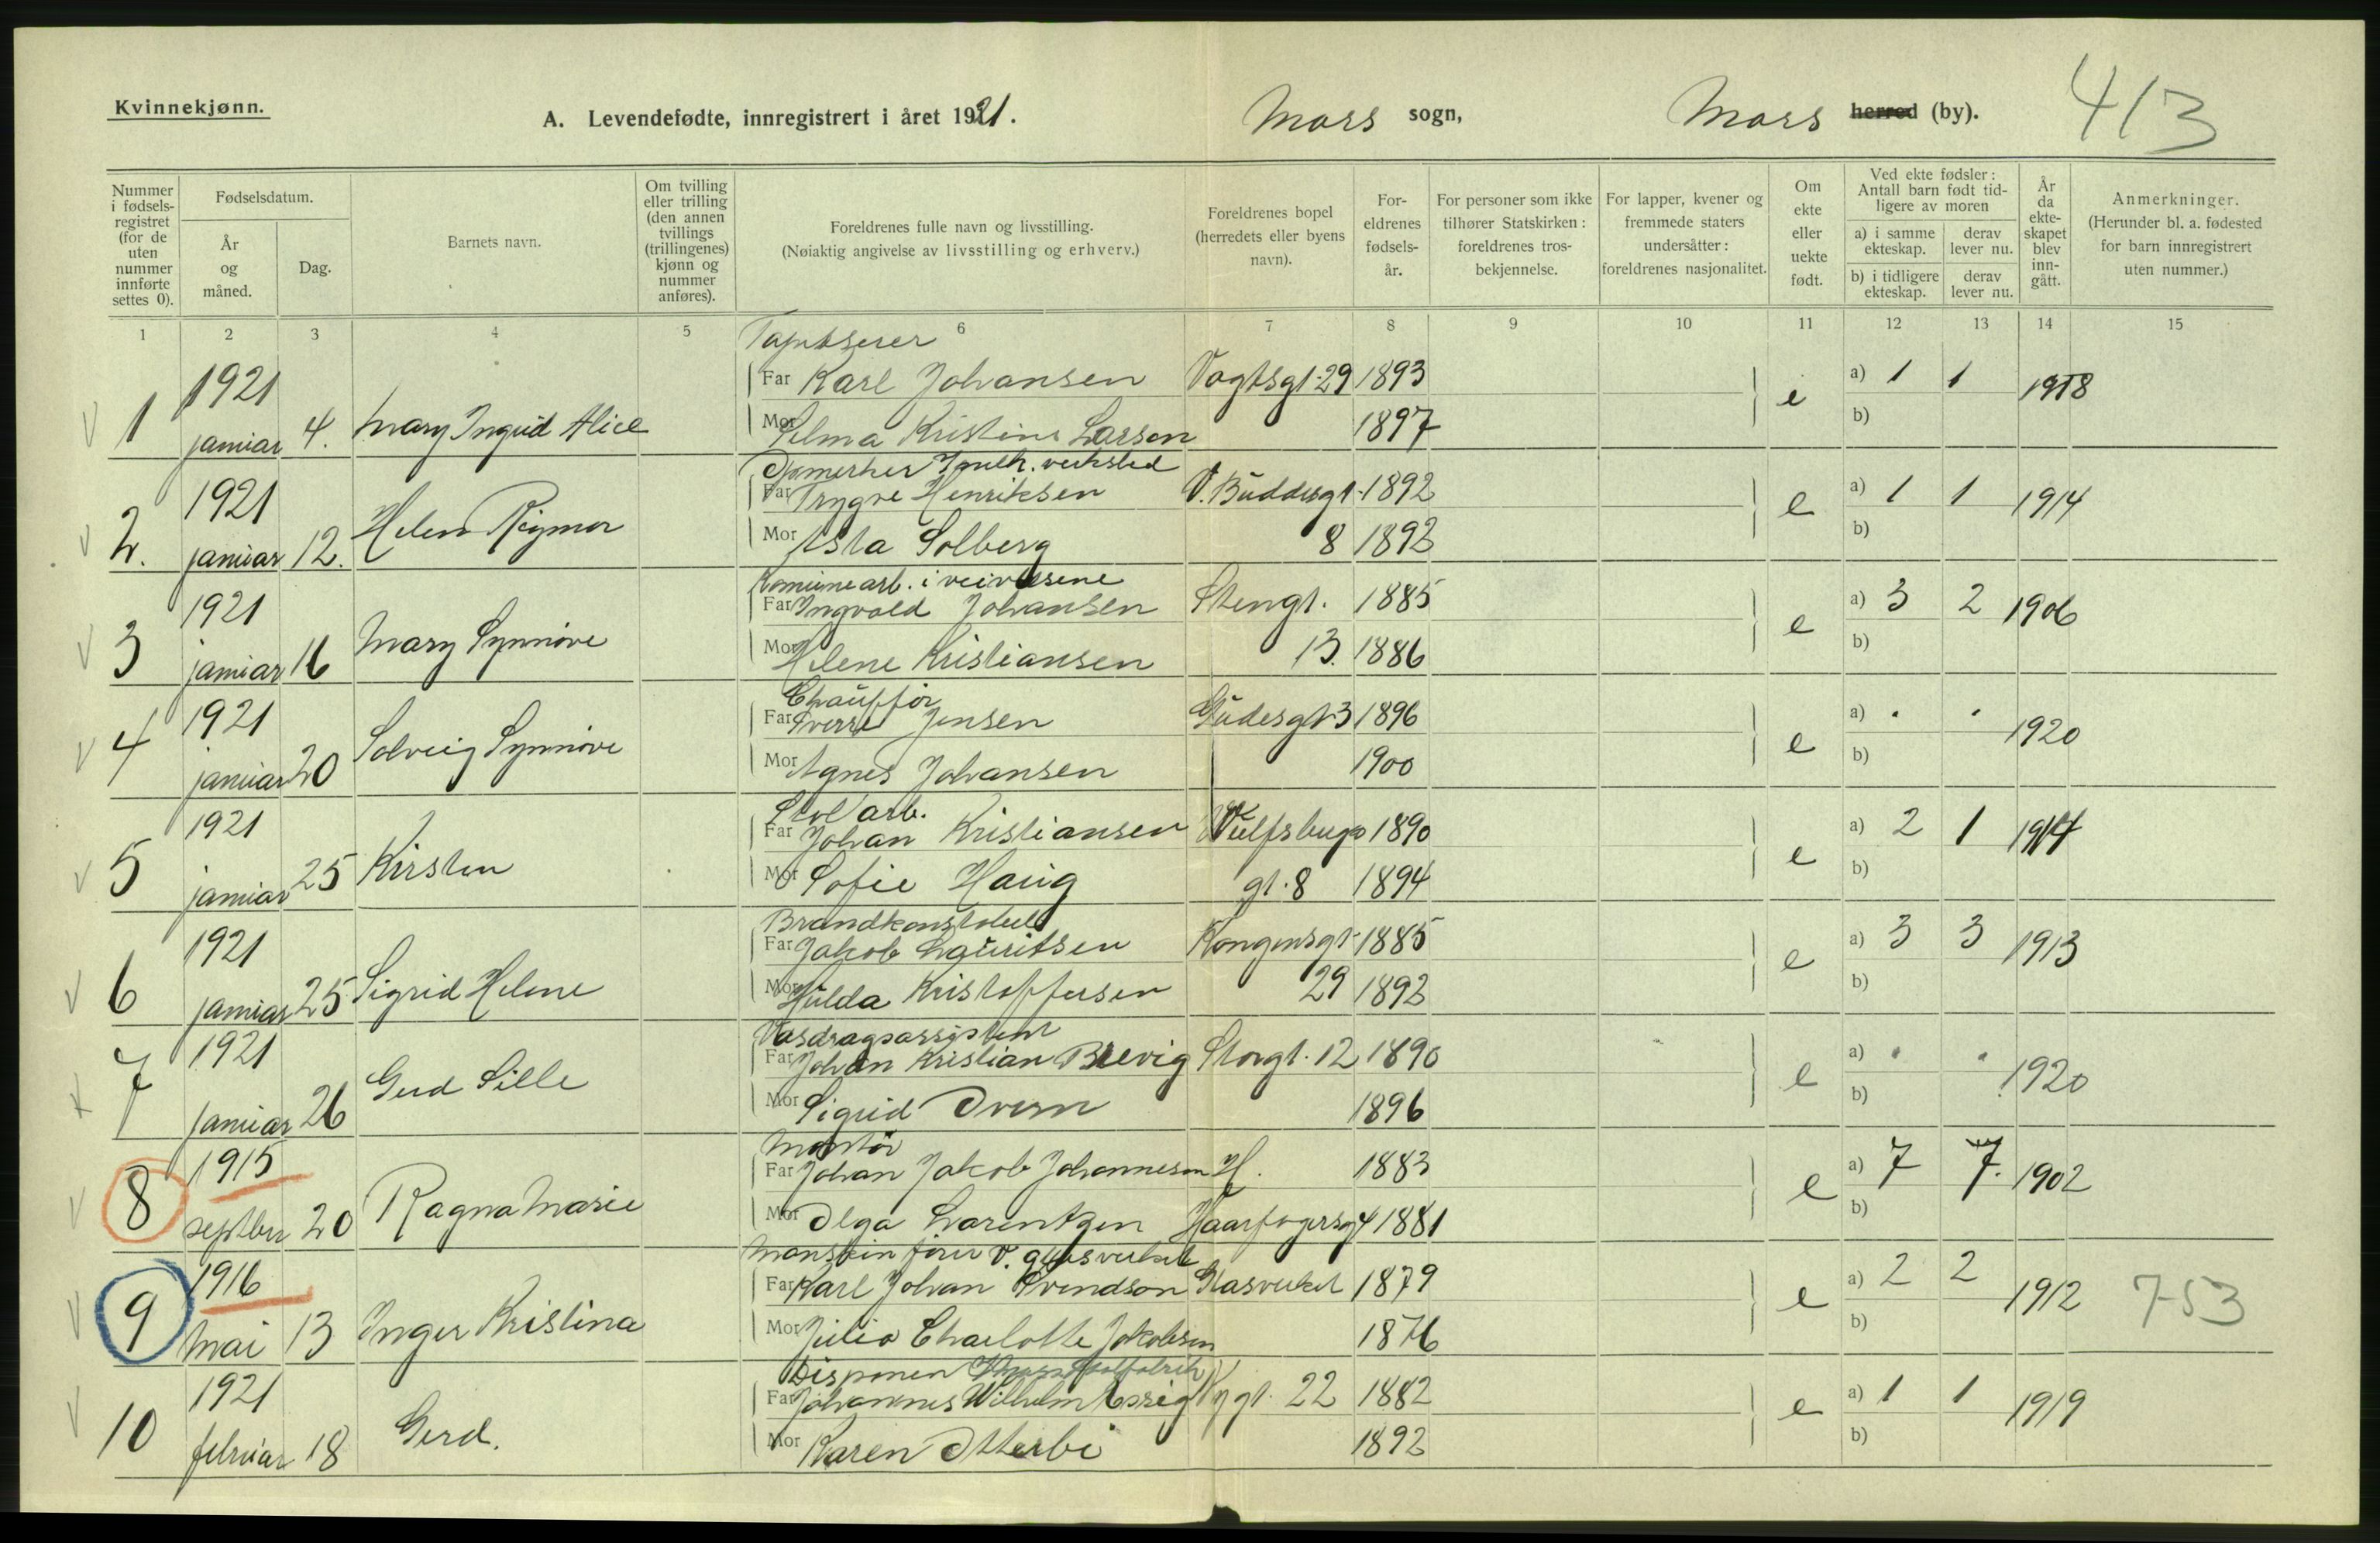 Kvinnekjønn.
A. Levendefødte, innregistrert i året 1921.
Moss sogn,
Moss herred (by).
413
Nummer i fødselsregistret (for de uten nummer innførte settes 0).
Fødselsdatum.
År og måned.
Dag.
Barnets navn.
Om tvilling eller trilling (den annen tvillings (trillingenes) kjønn og nummer anføres).
Foreldrenes fulle navn og livsstilling.
(Nøiaktig angivelse av livsstilling og erhverv.)
Foreldrenes bopel (herredets eller byens navn).
Foreldrenes fødselsår.
For personer som ikke tilhører Statskirken: foreldrenes trosbekjennelse.
For lapper, kvener og fremmede staters undersåtter: foreldrenes nasjonalitet.
Om ekte eller uekte født.
Ved ekte fødsler: Antall barn født tidligere av moren
a) i samme ekteskap.
derav lever nu.
b) i tidligere ekteskap.
derav lever nu.
År da ekteskapet blev inngått.
Anmerkninger.
(Herunder bl. a. fødested for barn innregistrert uten nummer.)
1 2 3 4 5 6 7 8 9 10 11 12 13 14 15
Tapetserer
1921 Far Karl Johansen Vogtsgt. 29 1893 e a) 1 1 1918
1 januar 4. Mary Ingrid Alice Mor Selma Kristine Larsen 1897 b)
verksted
1921 Far Trygve Henriksen V. Buddesgt. 1892 e a) 1 1 1914
2. januar 12. Helen Rigmor Mor Asta Solberg 8 1892 b)
Komunearb. i veivesene
1921 Far Ingvald Johansen Stengt. 1885 e a) 3 2 1906
3 januar 16 Mary Synnøve Mor Helene Kristiansen 13. 1886 b)
Chauffør
1921 Far Sverre Jensen Gudesgt 3 1896 e a) . . 1920
4 januar 20 Solveig Synnøve Mor Agnes Johansen 1900 b)
arb.
1921 Far Johan Kristiansen Wulfsbergs 1890 e a) 2 1 1914
5 januar 25 Kirsten Mor Sofie Haug gt. 8 1894 b)
Brandkonstabel
1921 Far Jakob Lauritsen Kongensgt. 1885 e a) 3 3 1913
6 januar 25 Sigrid Helene Mor Hulda Kristoffersen 29 1892 b)
Vasdragsassistent
1921 Far Johan Kristian Brevig Storgt. 12 1890 e a) . . 1920
7 januar 26 Gerd Sille Mor Sigrid 1896 b)
Montør
1915 Far Johan Jakob Johannesen H. 1883 e a) 7 7. 1902
8 septbr 20 Ragna Marie Mor Olga Larentzen Haarfagersgt 1881 b)
v. glasverket
1916 Far Karl Johan Svendsen Glasverket 1879 e a) 2 2 1912 753
9 mai 13 Inger Kristina Mor Julia Charlotte Jakobsen 1876 b)
Disponen
1921 Far Johannes Wilhelm gt. 22 1882 e a) 1 1 1919
10 februar 18 Gerd. Mor Karen Otterbi 1892 b)